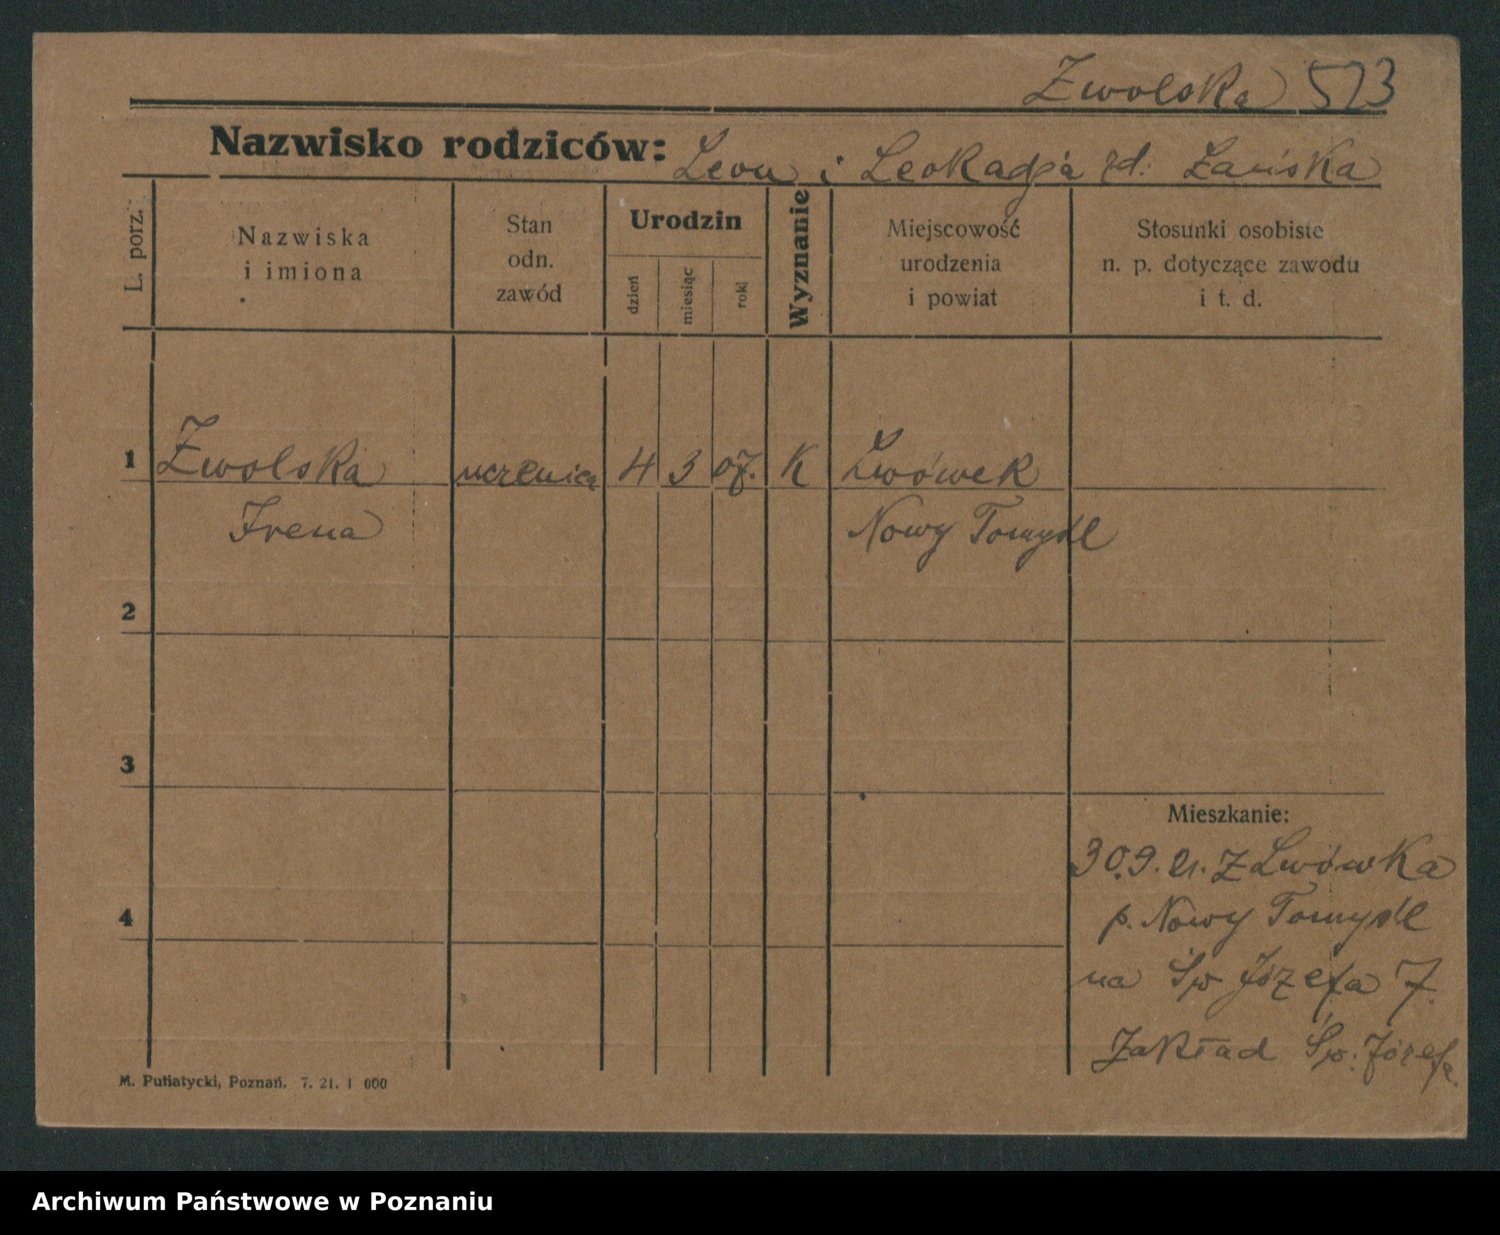 Zwolska 523
Nazwisko rodziców: Leon i Leokadja rd. Łańska
L. porz.
Nazwiska
i imiona
Stan
odn.
zawód
Urodzin
dzień
miesiąc
rok
Wyznanie
Miejscowość
urodzenia
i powiat
Stosunki osobiste
n. p. dotyczące zawodu
i t. d.
1 Zwolska uczenica 4 3 07. K Lwówek
Irena Nowy Tomyśl
2
3
Mieszkanie:
30.9.21. z Lwówka
p. Nowy Tomyśl
4
na Św Józefa 7.
Zakład Św. Józefa.
M. Putiatycki, Poznań. 7. 21. 1 000
Archiwum Państwowe w Poznaniu